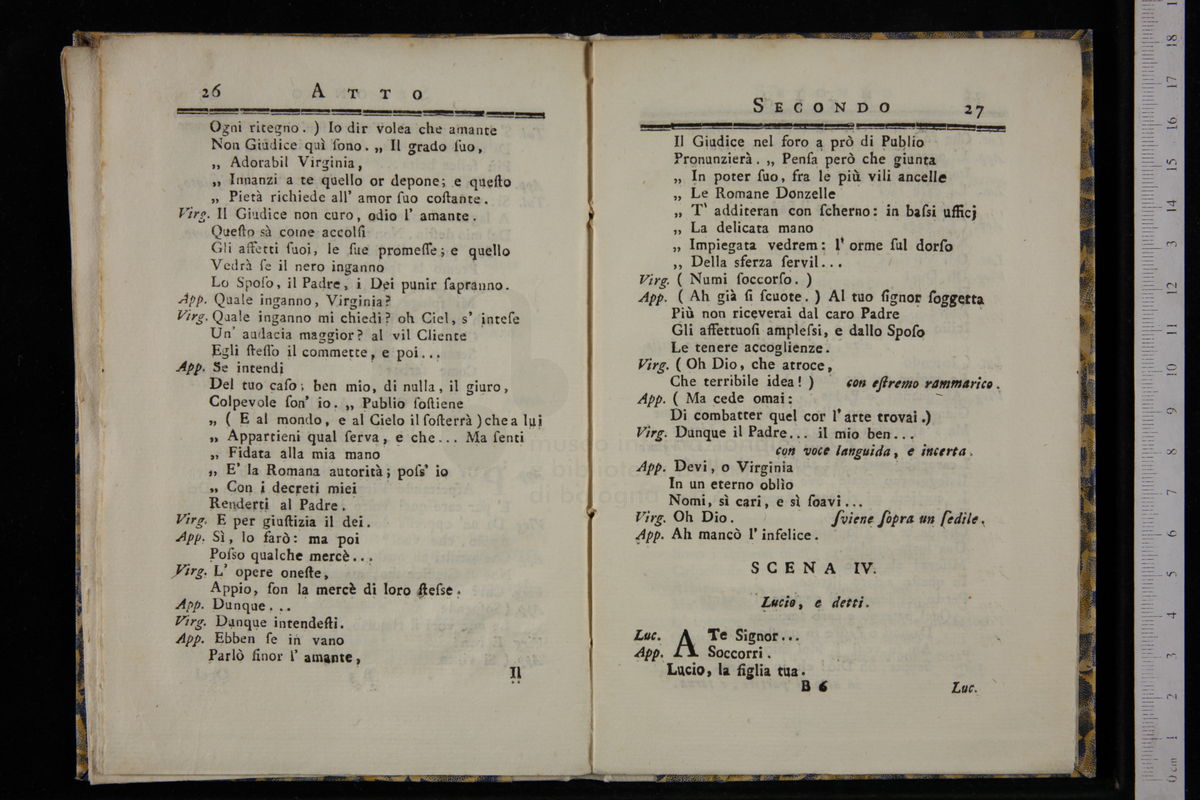 26 ATTO
Ogni ritegno. ) Io dir volea che amante
Non Giudice quì ſono. „ Il grado ſuo,
„ Adorabil Virginia,
„ Innanzi a te quello or depone; e queſto
„ Pietà richiede all' amor ſuo coſtante.
Virg. Il Giudice non curo, odio l' amante.
Queſto sà come accolſi
Gli affetti ſuoi, le ſue promeſſe; e quello
Vedrà ſe il nero inganno
Lo Spoſo, il Padre, i Dei punir ſapranno.
App. Quale inganno, Virginia?
Virg. Quale inganno mi chiedi? oh Ciel, s' inteſe
Un' audacia maggior? al vil Cliente
Egli ſteſſo il commette, e poi...
App. Se intendi
Del tuo caſo; ben mio, di nulla, il giuro,
Colpevole ſon' io. „ Publio ſoſtiene
„ ( E al mondo, e al Cielo il ſoſterrà ) che a lui
„ Appartieni qual ſerva, e che... Ma ſenti
„ Fidata alla mia mano
„ E' la Romana autorità; poſs' io
„ Con i decreti miei
Renderti al Padre.
Virg. E per giuſtizia il dei.
App. Sì, lo farò: ma poi
Poſso qualche mercè...
Virg. L' opere oneſte,
Appio, ſon la mercè di loro ſteſse.
App. Dunque...
Virg. Dunque intendeſti.
App. Ebben ſe in vano
Parlò finor l' amante,
Il
SECONDO 27
Il Giudice nel foro a prò di Publio
Pronunzierà. „ Penſa però che giunta
„ In poter ſuo, fra le più vili ancelle
„ Le Romane Donzelle
„ T' additeran con ſcherno: in baſsi ufficj
„ La delicata mano
„ Impiegata vedrem: l' orme ſul dorſo
„ Della sferza ſervil...
Virg. ( Numi ſoccorſo. )
App. ( Ah già ſi ſcuote. ) Al tuo ſignor ſoggetta
Più non riceverai dal caro Padre
Gli affettuoſi ampleſsi, e dallo Spoſo
Le tenere accoglienze.
Virg. ( Oh Dio, che atroce,
Che terribile idea! ) con eſtremo rammarico.
App. ( Ma cede omai:
Di combatter quel cor l' arte trovai.)
Virg. Dunque il Padre... il mio ben...
con voce languida, e incerta.
App. Devi, o Virginia
In un eterno oblìo
Nomi, sì cari, e sì ſoavi...
Virg. Oh Dio. ſviene ſopra un ſedile.
App. Ah mancò l' infelice.
SCENA IV.
Lucio, e detti.
Luc. A Te Signor...
App. Soccorri.
Lucio, la figlia tua.
B 6 Luc.